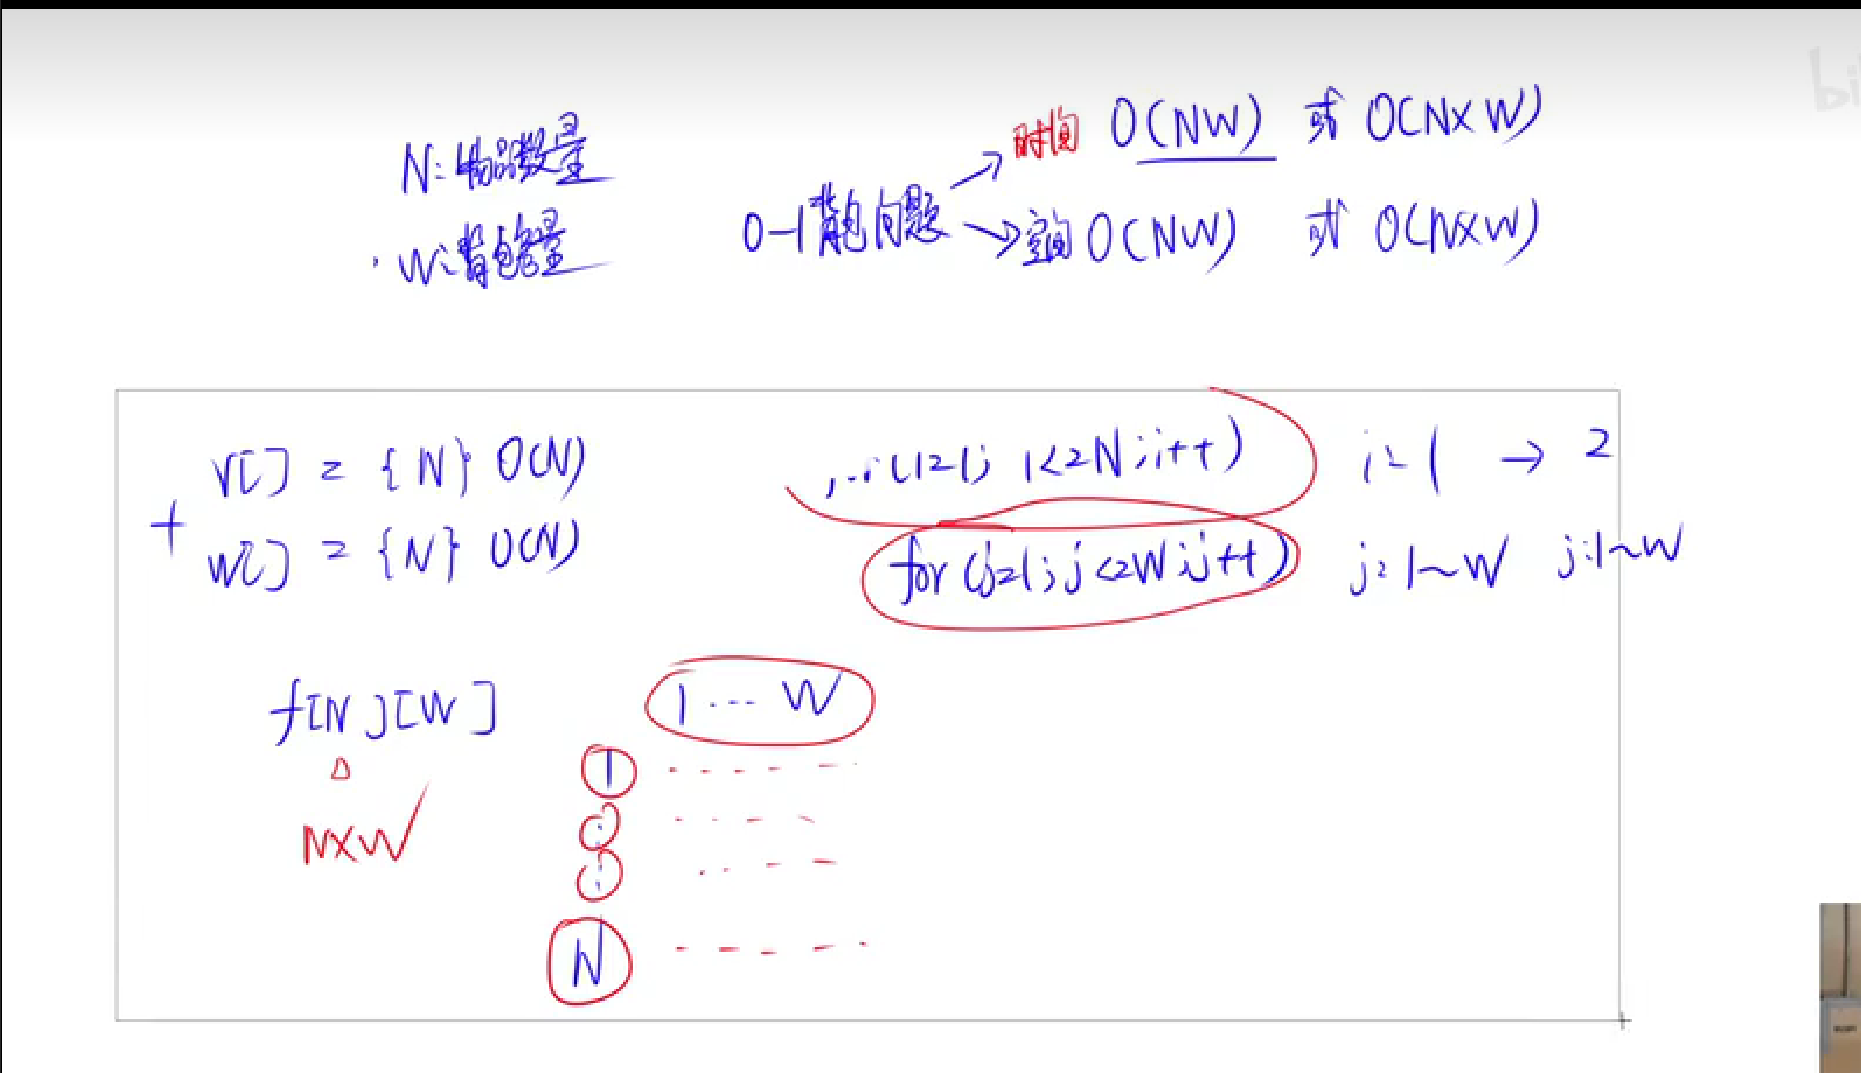 N:物品数量
W:背包容量
0-1背包问题
时间 O(NW) 或 O(N×W)
空间 O(NW) 或 O(N×W)
v[] = {N} O(N)
+
w[] = {N} O(N)
i<=N;i++) i=1 → 2
for(j=1;j<=W;j++) j:1~W j:1~W
f[N][W]
N×W
1 ... W
1
N
bi